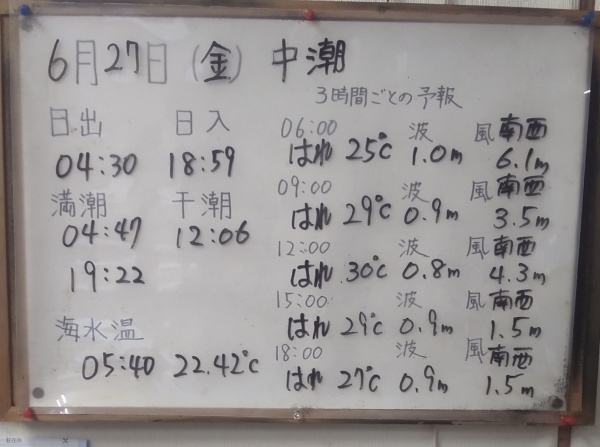 6月27日(金) 中潮
3時間ごとの予報
日出 日入
04:30 18:59
満潮 干潮
04:47 12:06
19:22
海水温
05:40 22.42℃
06:00 波 風 南西
はれ 25℃ 1.0m 6.1m
09:00 波 風 南西
はれ 29℃ 0.9m 3.5m
12:00 波 風 南西
はれ 30℃ 0.8m 4.3m
15:00 波 風 南西
はれ 29℃ 0.9m 1.5m
18:00 波 風 南西
はれ 27℃ 0.9m 1.5m